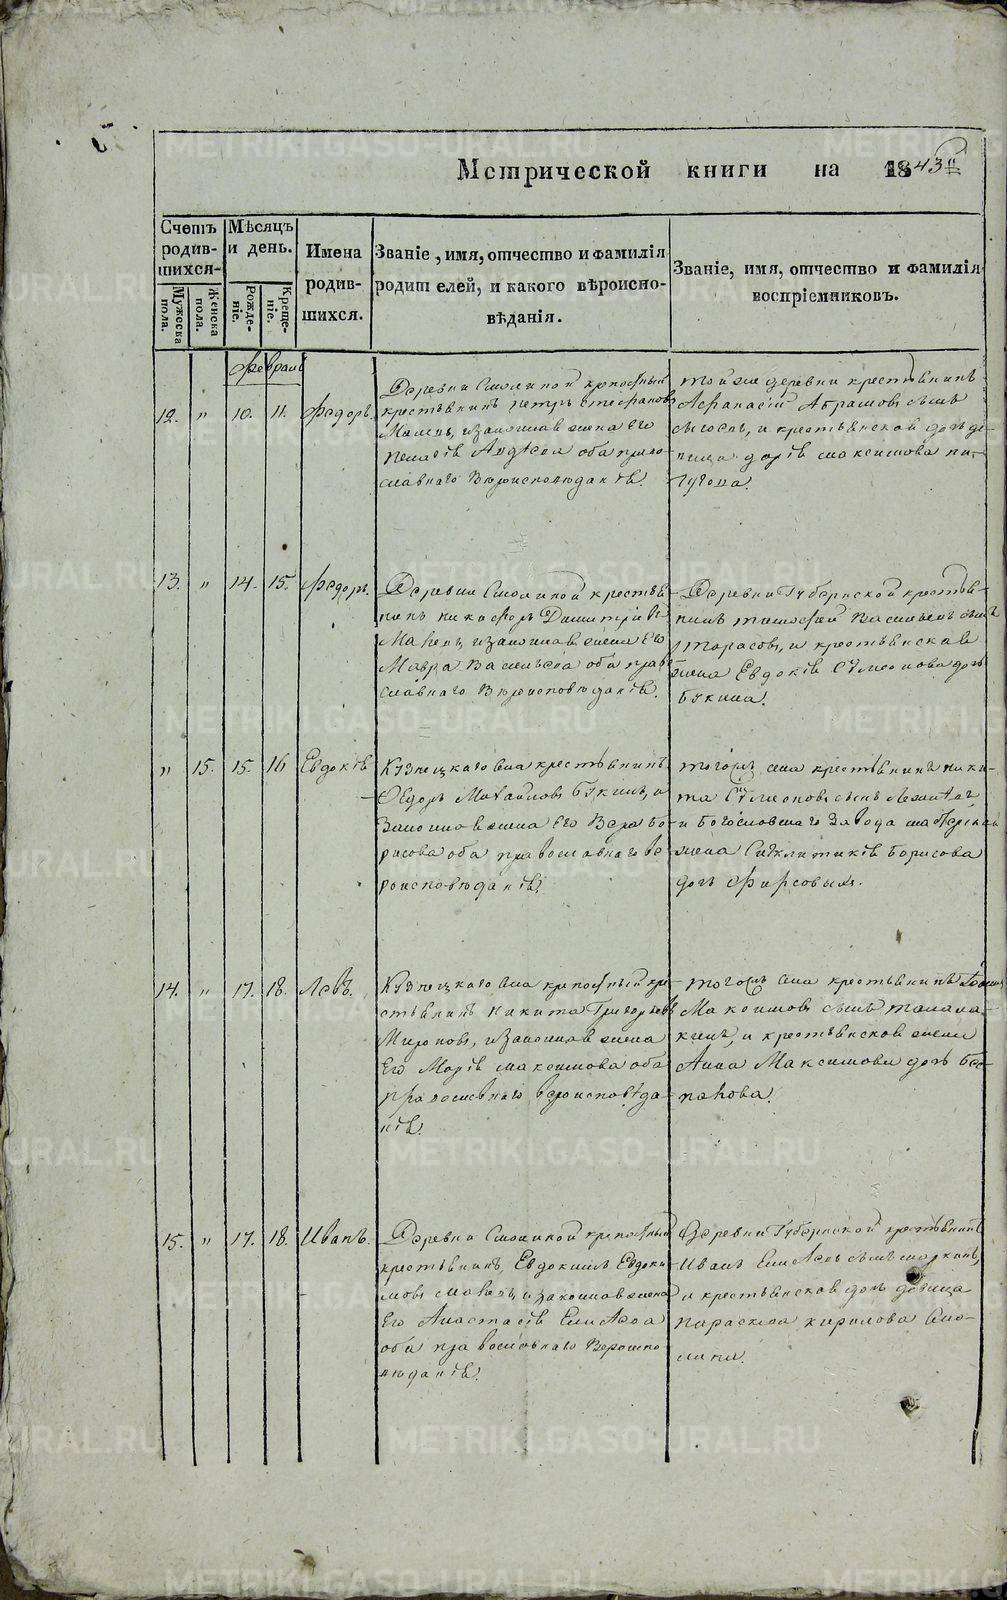 Метрической книги на 1843й
Счетъ родив-шихся
Мужеска пола.
Женска пола.
Мѣсяцъ и день.
Рожде-ніе.
Креще-ніе.
Имена родив-шихся.
Званіе, имя, отчество и фамилія
родителей, и какого вѣроиспо-
вѣданія.
Званіе, имя, отчество и фамилія
воспріемниковъ.
Февраль
12. " 10. 11. Федоръ.
Деревни
крестьянинъ Петръ Стефановъ
законная жена его
оба право-
славнаго вѣроисповѣданія.
Той же деревни крестьянинъ
Афанасій Абрамовъ сынъ
и крестьянской дочь дѣ-
вица Дарія Максимова
13. " 14. 15. Федоръ.
Деревни крестья-
нинъ Никифоръ Димитріевъ
законная жена его
Мавра Васильева оба право
славнаго вѣроисповѣданія.
Деревни Губернской крестья-
нинъ Тимофей Васильевъ сынъ
Тарасовъ, и крестьянская
жена Евдокія Симеонова дочь
Букина.
" 15. 15. 16 Евдокія
Кузнецкаго села крестьянинъ
Федоръ Михайловъ Букинъ, и
законная жена его Вера Бо-
рисова оба православнаго ве
роисповѣданія.
тогожъ села крестьянинъ Ники-
та Симеоновъ сынъ
и Богословскаго завода
жена Синклитикія Борисова
дочь Фирсовыхъ.
14. " 17. 18. Левъ.
Кузнецкаго села крепостный кре
стьянинъ Никита Григорьевъ
Мироновъ, и законная жена
его Марія Максимова оба
православнаго вероисповѣда-
нія.
тогожъ села крестьянинъ
Максимовъ сынъ
и крестьянская жена
Анна Максимова дочь
15. " 17. 18. Иванъ.
Деревни крепостный
крестьянинъ, Евдокимъ Евдоки-
мовъ и законная жена
его Анастасія Елисеева
оба православнаго вероиспо
вѣданія.
Деревни Губернской крестьянинъ
Иванъ Елисеевъ сынъ
и крестьянская дочь девица
Параскева Кирилова
METRIKI.GASO-URAL.RU